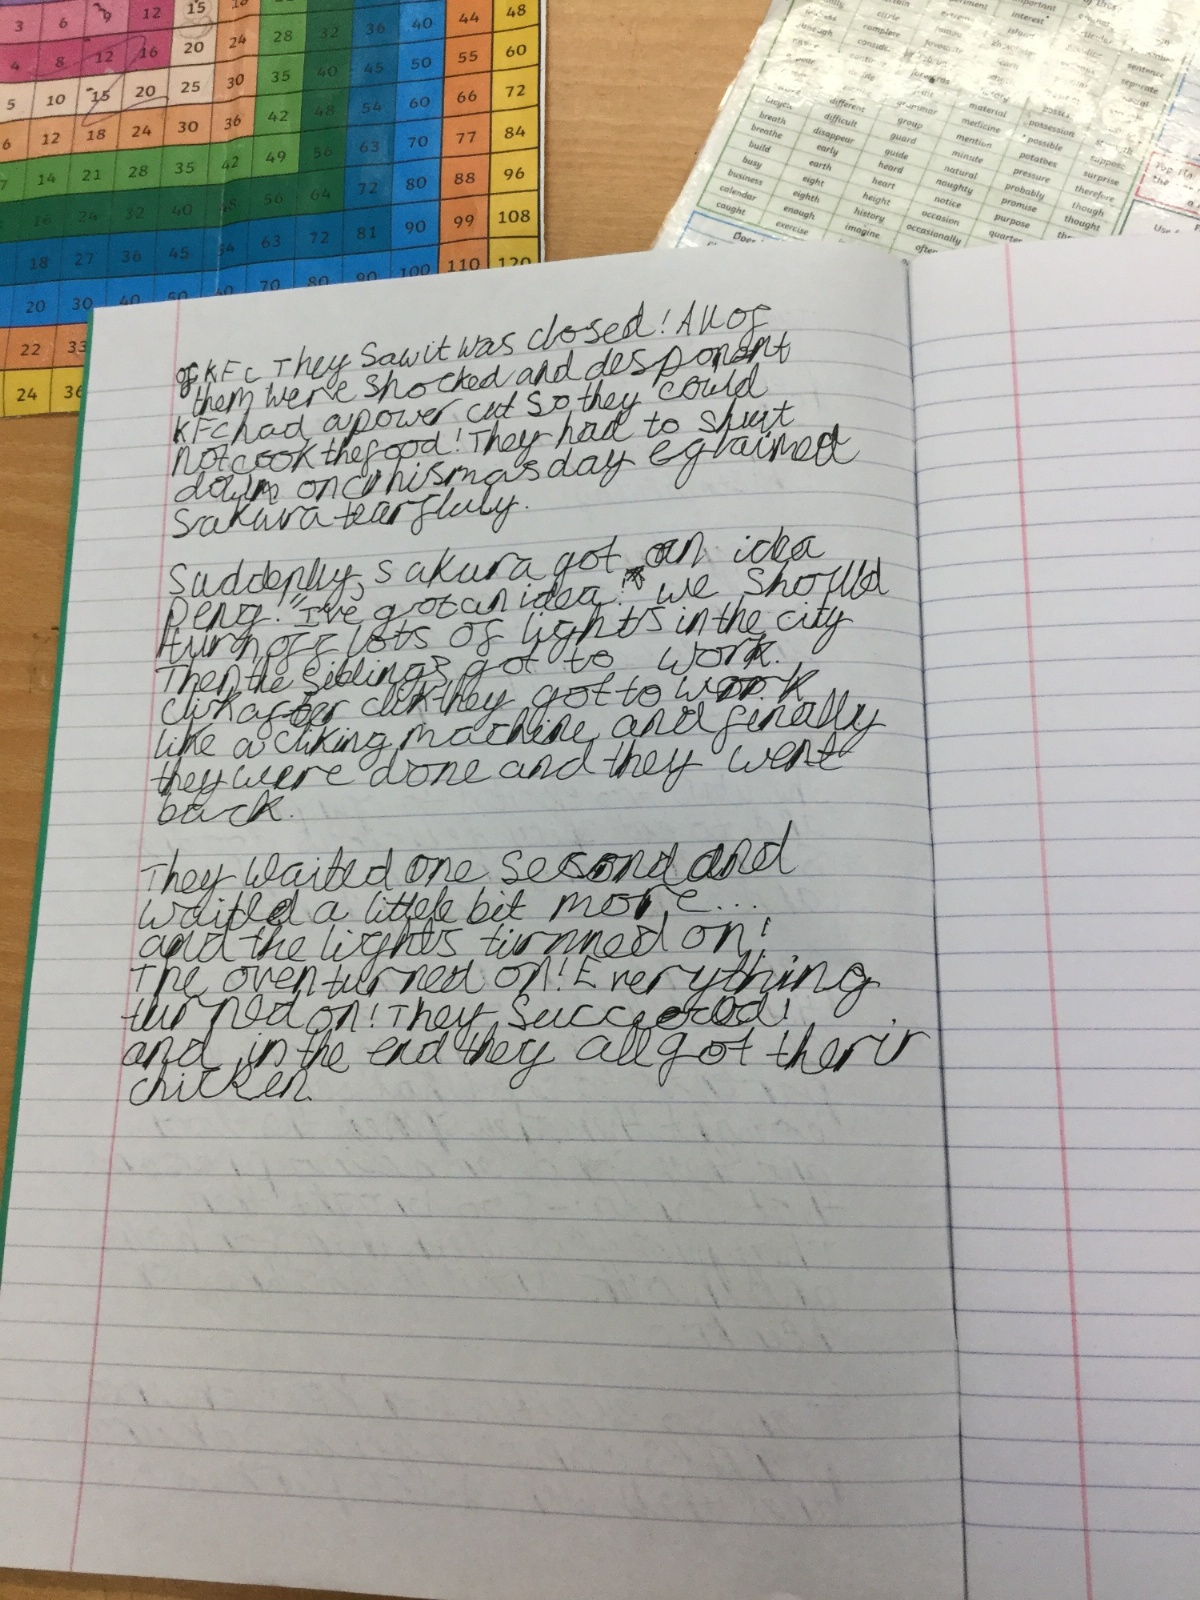 3 6 9 12 15 18 21 24 27 30 33 36
4 8 12 16 20 24 28 32 36 40 44 48
5 10 15 20 25 30 35 40 45 50 55 60
6 12 18 24 30 36 42 48 54 60 66 72
7 14 21 28 35 42 49 56 63 70 77 84
16 24 32 40 48 56 64 72 80 88 96
18 27 36 45 54 63 72 81 90 99 108
20 30 40 50 60 70 80 90 100 110 120
22 33
24 36
important
interest
sentence
separate
length different grammar material possess
breath difficult group medicine possession
breathe disappear guard mention possible suppose
build early guide minute potatoes surprise
busy earth heard natural pressure therefore
business eight heart naughty probably though
calendar eighth height notice promise thought
caught enough history occasion purpose
exercise imagine occasionally quarter
often
of KFC They Saw it was closed! All of
them were shocked and desponant
KFC had a power cut So they could
not cook the food! They had to shut
down on Chrismas day Eglaimed
Sakura tearfluly.
Suddenlly, sakura got an idea
Deng! "I've got an idea!" we should
turn off lots of lights in the city
Then the Siblings got to work.
Clik after clik they got to work
like a cliking machine and finally
they were done and they went
back.
They Waited one second and
waitled a little bit more...
and the lights turnned on!
The oven turned on! Everything
turned on! They Succeeded!
and in the end they all got therir
chicken.